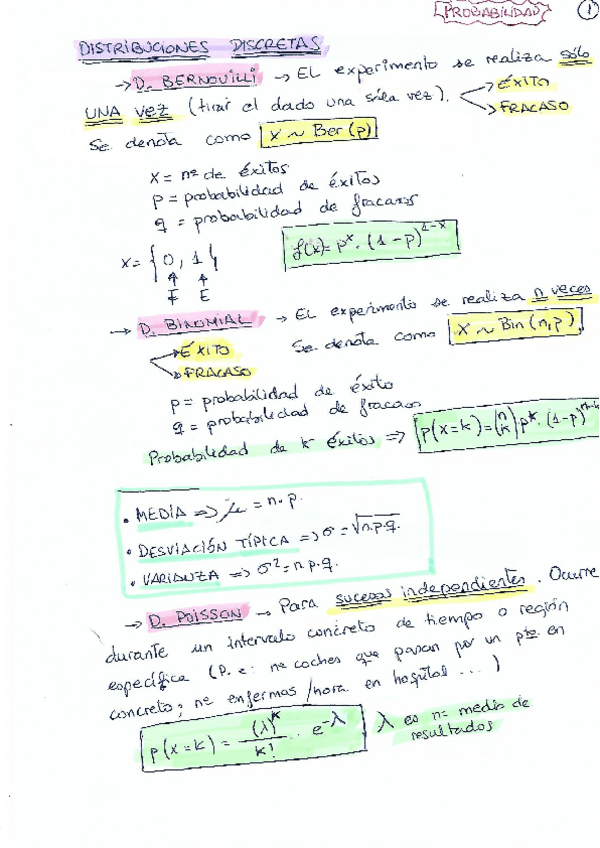 PROBABILIDAD 1
DISTRIBUCIONES DISCRETAS
→ D. BERNOUILLI → El experimento se realiza sólo
UNA vez (tirar el dado una sóla vez). → ÉXITO
→ FRACASO
Se denota como X ~ Ber(p)
X = nº de éxitos
p = probabilidad de éxitos
q = probabilidad de fracasos
x = {0, 1} f(x) = p^x · (1-p)^{1-x}
F E
→ D. BINOMIAL → El experimento se realiza n veces
→ ÉXITO Se denota como X ~ Bin(n,p)
→ FRACASO
p = probabilidad de éxito
q = probabilidad de fracaso
Probabilidad de k éxitos ⇒ p(x=k) = (n k) p^k · (1-p)^{n-k}
• MEDIA ⇒ μ = n·p.
• DESVIACIÓN TÍPICA ⇒ σ = √n·p·q.
• VARIANZA ⇒ σ² = n·p·q.
→ D. POISSON → Para sucesos independientes. Ocurre
durante un intervalo concreto de tiempo o región
específica (P.e: nº coches que pasan por un pto. en
concreto; nº enfermos/hora en hospital ...)
p(x=k) = (λ)^k / k! · e^{-λ} λ es nº medio de
resultados